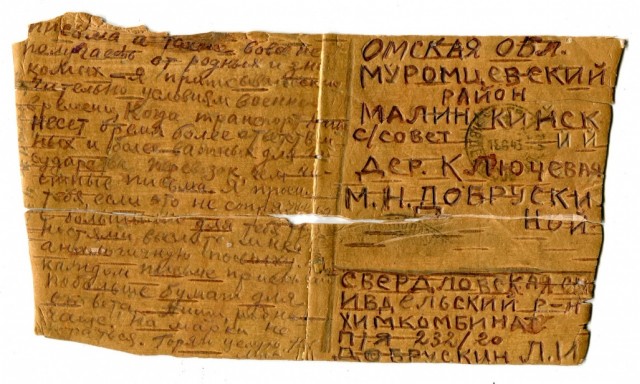 письма а также вовсе не
от родных и зна
комых — я приписываю
чительно условиям военного
времени, когда транспорт
несет бремя более ответствен
ных и более важных для
сударства перевозок, чем ча-
стные письма. Я прошу
тебя, если это не
с большими для тебя
ностями, выслать мне
аналогичную посылку.
каждом письме
побольше бумаги для
Пиши,
чаще, на марки не
целую.
ОМСКАЯ ОБЛ.
МУРОМЦЕВСКИЙ
РАЙОН
МАЛИНКИЙСК
С/СОВЕТ ИЙ
ДЕР. КЛЮЧЕВАЯ
М.Н. ДОБРУСКИ
НОЙ
СВЕРДЛОВСКАЯ
ИВДЕЛЬСКИЙ Р-Н
ХИМКОМБИНАТ
П/Я 232/20
ДОБРУСКИН Л.И